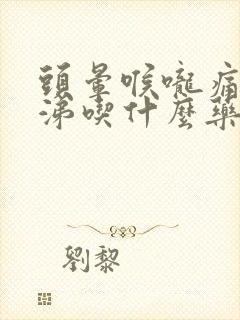 頭暈喉嚨痛
涕喫什麼藥
劉黎